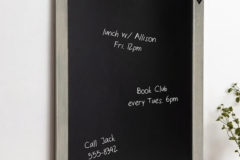 lunch w/ Allison
Fri. 12pm
Book Club
every Tues. 6pm
Call Jack
555-8342